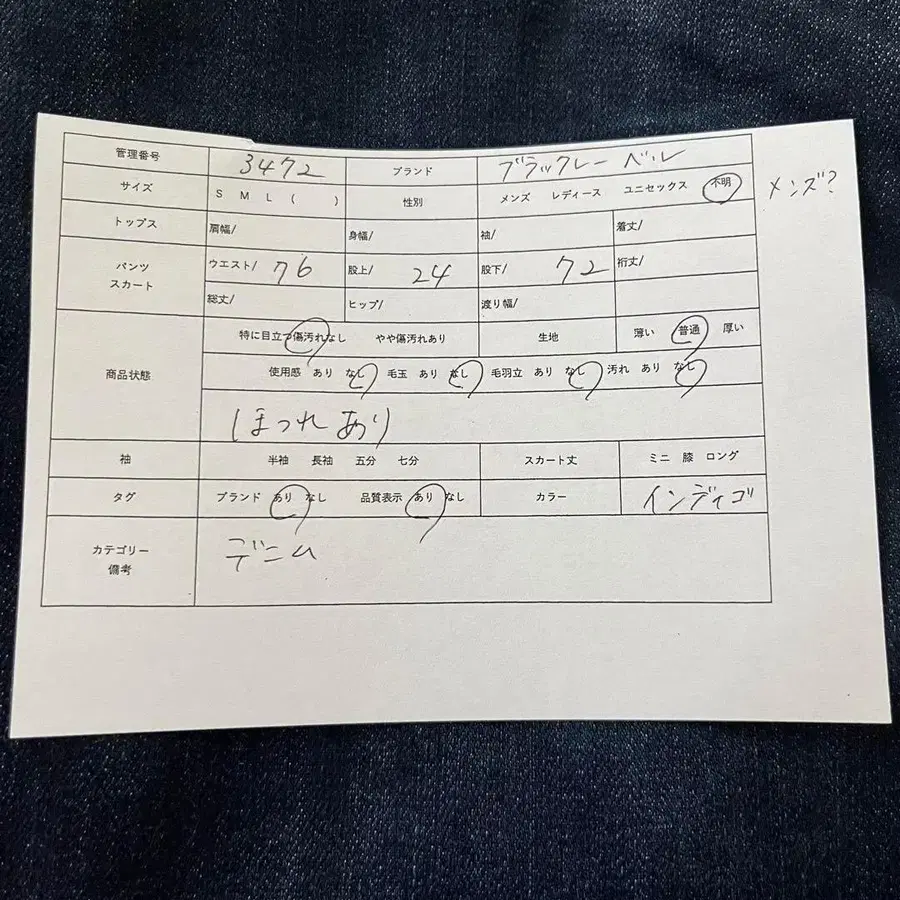 管理番号 3472 ブランド ブラックレーベル
サイズ S M L ( ) 性別 メンズ レディース ユニセックス 不明 メンズ?
トップス 肩幅/ 身幅/ 袖/ 着丈/
パンツ スカート ウエスト/ 76 股上/ 24 股下/ 72 裄丈/
総丈/ ヒップ/ 渡り幅/
商品状態 特に目立つ傷汚れなし やや傷汚れあり 生地 薄い 普通 厚い
使用感 あり なし 毛玉 あり なし 毛羽立 あり なし 汚れ あり なし
ほつれあり
袖 半袖 長袖 五分 七分 スカート丈 ミニ 膝 ロング
タグ ブランド あり なし 品質表示 あり なし カラー インディゴ
カテゴリー 備考 デニム